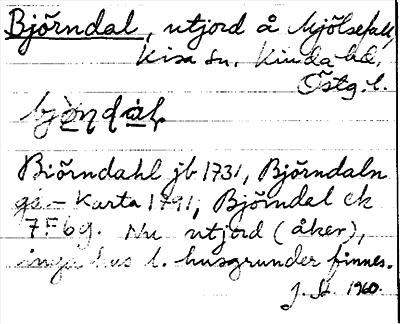 Björndal, utjord å Mjölsefall,
Kisa sn. Kinda hd.
Östg. l.
bjö̀ṇdàḷ
Biörndahl jb 1731, Björndaln
gs- Karta 1791, Björndal ek
7F6g. Nu utjord (åker),
inga hus l. husgrunder finnes.
J. St. 1960.